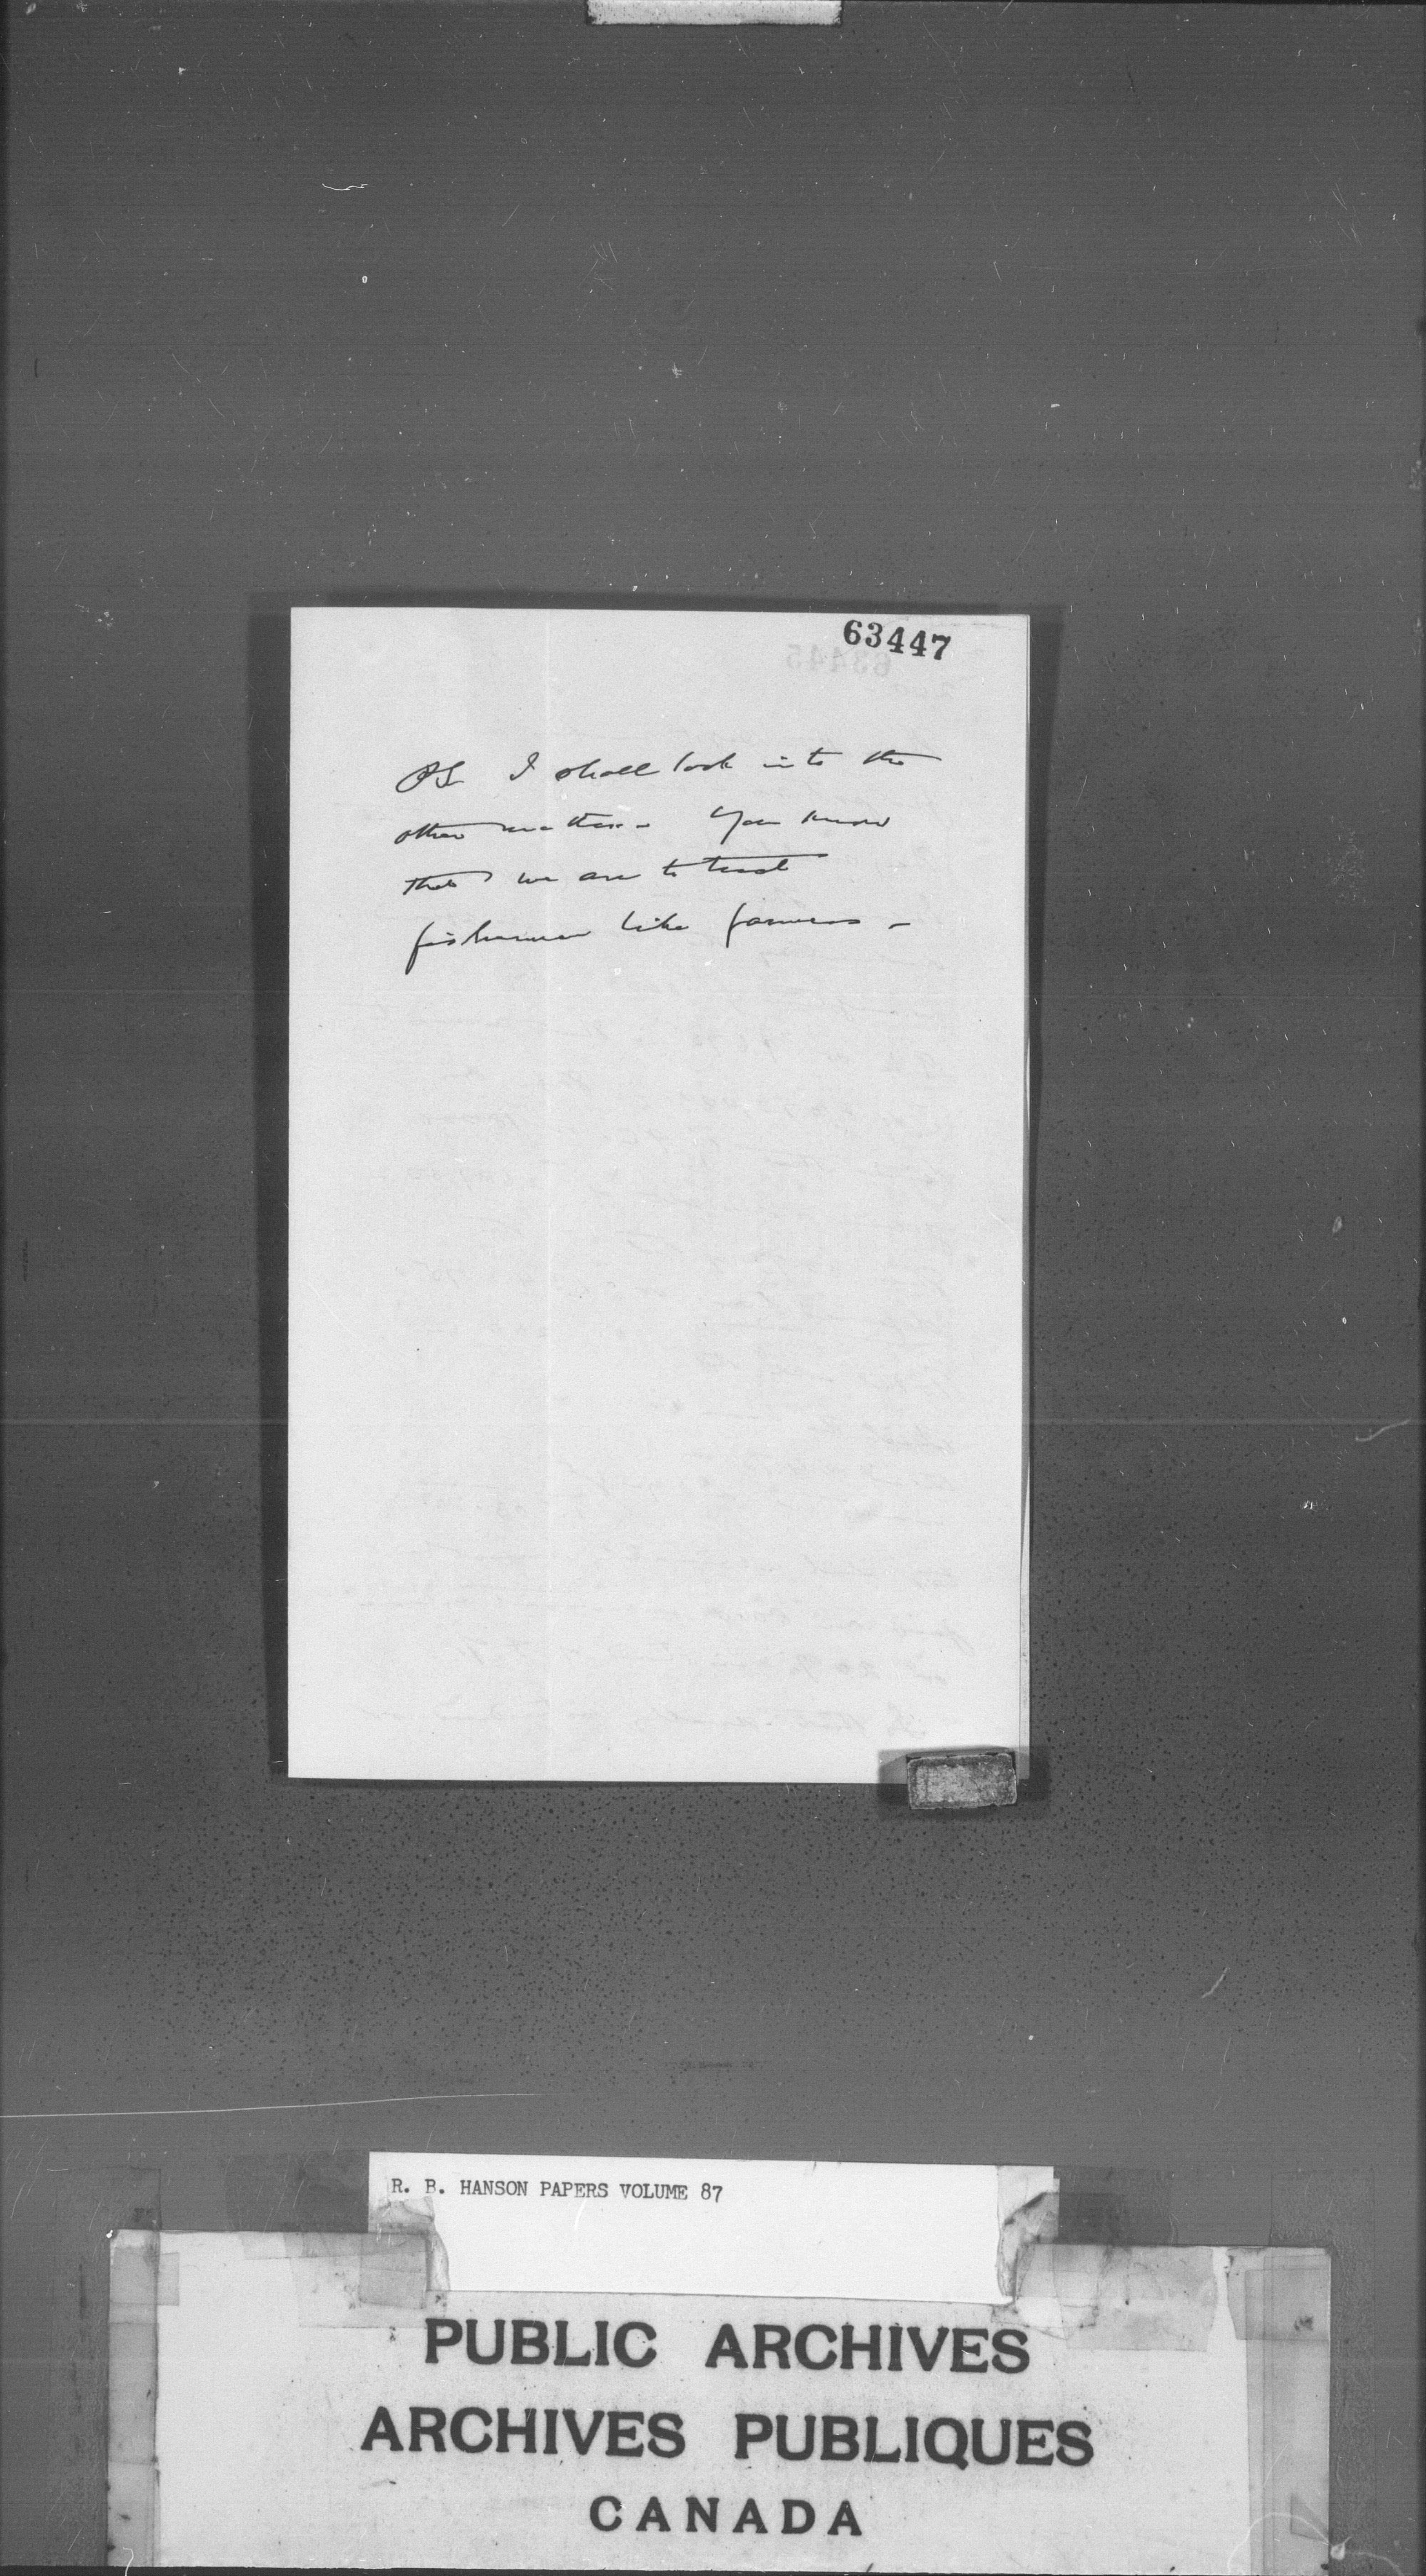 63447
63445
PS I shall look into the
other matter - You know
that we are to treat
fishermen like farmers -
R. B. HANSON PAPERS VOLUME 87
PUBLIC ARCHIVES
ARCHIVES PUBLIQUES
CANADA